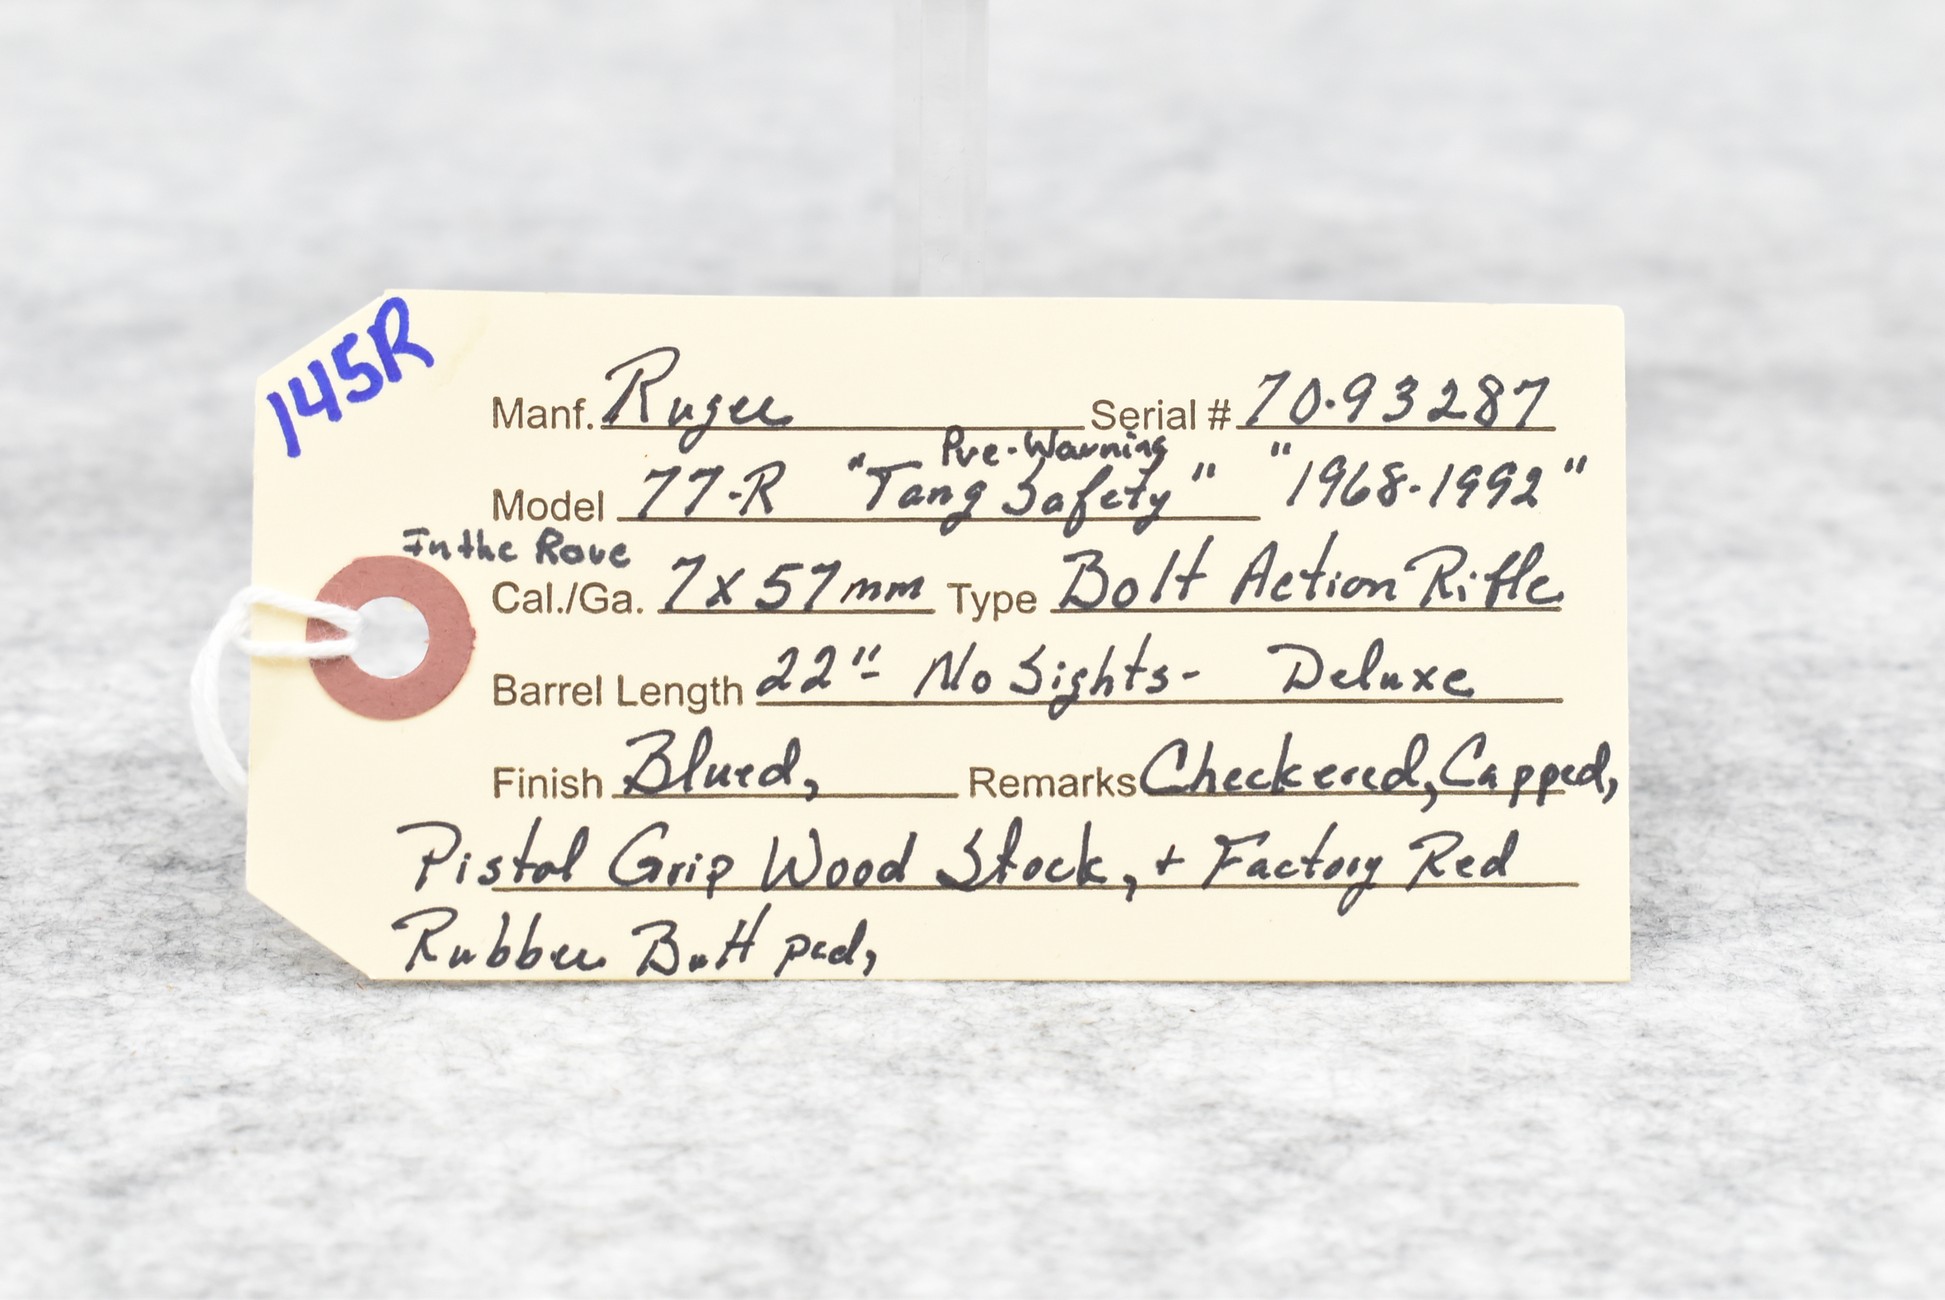 145R
Manf. Ruger Serial # 70-93287
Pre-Warning
Model 77-R "Tang Safety" "1968-1992"
In the Rare
Cal./Ga. 7x57mm Type Bolt Action Rifle
Barrel Length 22"- No Sights- Deluxe
Finish Blued, Remarks Checkered, Capped,
Pistol Grip Wood Stock, + Factory Red
Rubber Butt pad,